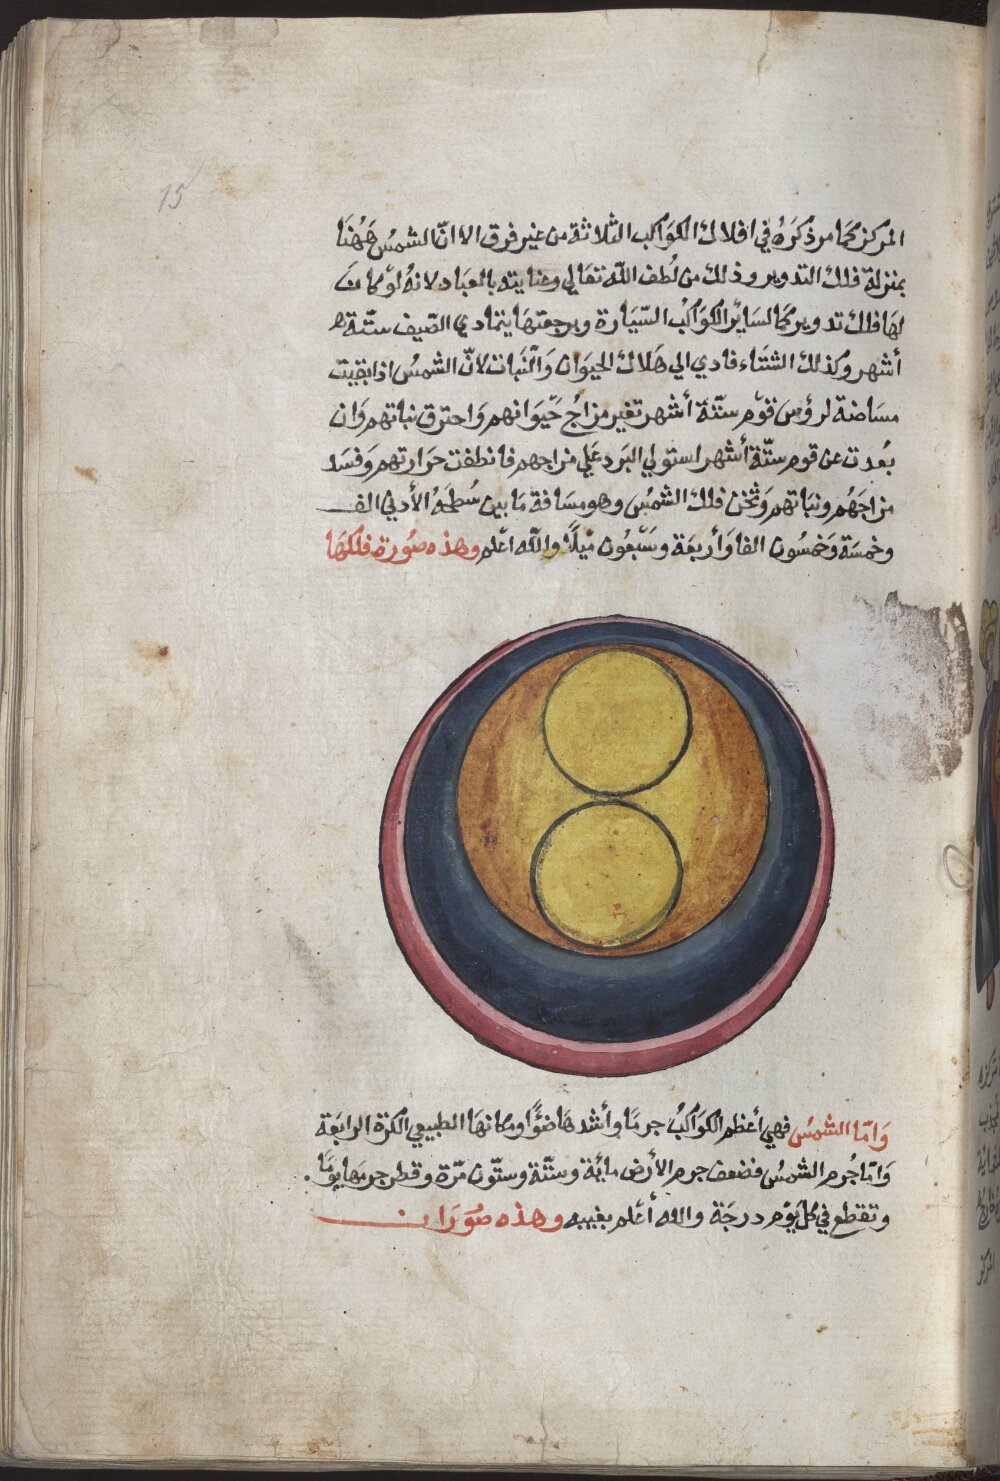 15
المركز كما مر ذكره في افلاك الكواكب الثلاثة من غير فرق الا انّ الشمس هٰهنا
بمنزلة فلك التدوير وذلك من لُطف اللّه تعالي وعنايته بالعباد لانهُ لو كانت
لها فلك تدوير كما لساير الكواكب السّيارة ورجعتها يتمادي الصّيف ستّة
أشهر وكذلك الشتاء فادي الي هلاك الحيوان والنّبات لانّ الشمس اذا بقيت
مسامتة لرؤس قوم ستّة أشهر تغير مزاجُ حَيوانهم واحترق نباتهم وان
بعُدت عن قوم ستّة أشهر استولي البرد علي مزاجهم فانطفت حرارتهم وفسد
مزاجهُم ونباتهم وثخن فلك الشمس وهو مسافة ما بين سُطحهُ الأدني الف
وخمسة وخمسون الفا وأربعة وسَبْعون ميلاً واللّه اعلم وهذه صُورة فلكها
وامّا الشمس فهي أعظم الكواكبُ جرما وأشدها ضوًا ومكانها الطبيعي الكرة الرابعة
وامّا جُرم الشمس فضعف جرم الأرض مائة وستّة وستّون مرّة وقطر جرمها يومًا
وتقطع في كل يوم درجة واللّه أعلم بغيبه وهذه صُورَاں